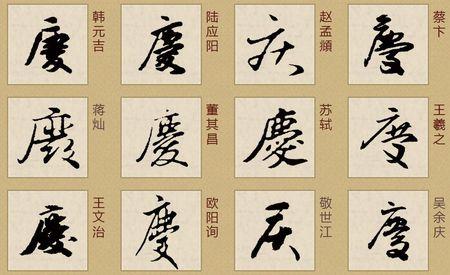 慶
韩元吉
慶
陆应阳
庆
赵孟頫
慶
蔡卞
慶
蒋灿
慶
董其昌
慶
苏轼
慶
王羲之
慶
王文治
慶
欧阳询
庆
敬世江
慶
吴余庆